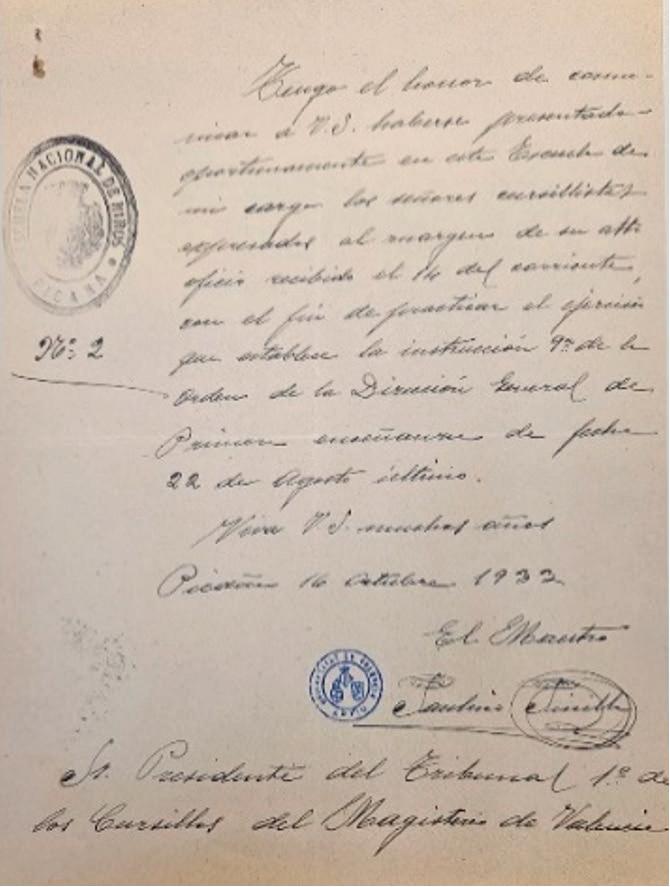 Tengo el honor de comu-
nicar á V.S. haberse presentado
oportunamente en esta Escuela de
mi cargo los señores cursillistas
expresados al margen de su att.º
oficio recibido el 14 del corriente,
con el fin de practicar el ejercicio
que establece la instrucción 9ª de la
Orden de la Dirección General de
Primera enseñanza de fecha
22 de Agosto último.
Viva V.S. muchos años
Picaña 16 Octubre 1933
El Maestro
Paulino
Sr. Presidente del Tribunal 1º de
los Cursillos del Magisterio de Valencia
ESCUELA NACIONAL DE NIÑOS
PICAÑA
Nº 2